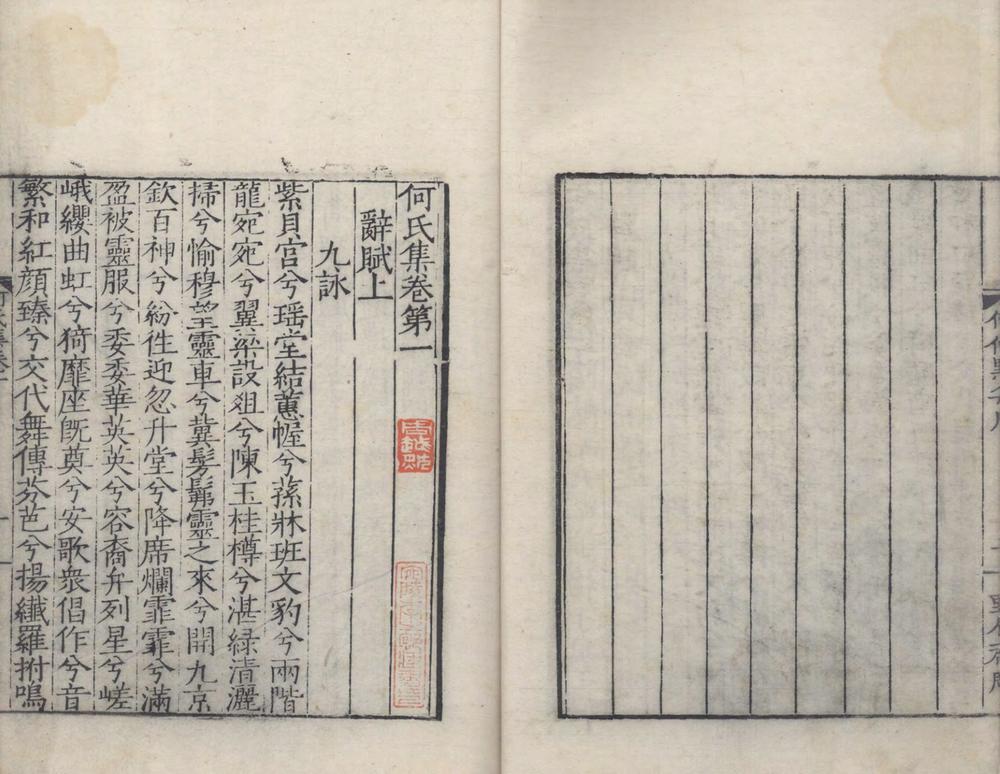 何氏集卷第一
辭賦上
九詠
紫貝宫兮瑶堂結蕙幄兮蓀牀班文豹兮兩階
龍宛宛兮翼梁設俎兮陳玉桂樽兮湛緑清灑
掃兮愉穆望靈車兮冀髣髴靈之來兮開九京
欽百神兮紛徃迎忽升堂兮降席爛霏霏兮滿
盈被靈服兮委委華英英兮容裔弁列星兮嵯
峨纓曲虹兮猗靡座旣奠兮安歌衆倡作兮音
繁和紅顔臻兮交代舞傳芬芭兮揚纖羅拊鳴